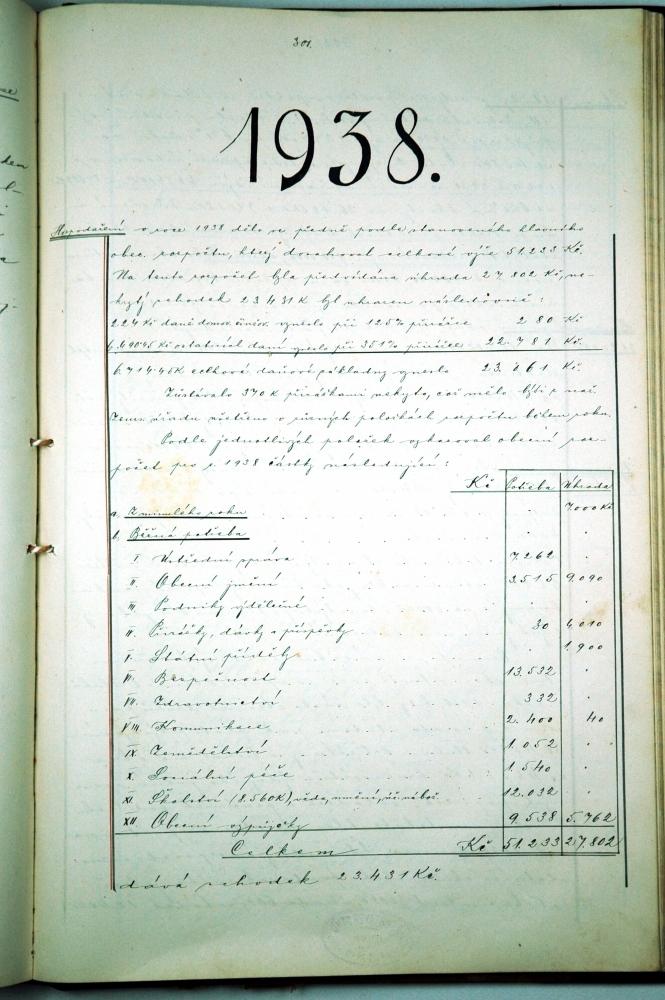 301.
1938.
Hospodaření v roce 1938 dělo se předně podle stanoveného hlavního
obec. rozpočtu, který dosahoval celkové výše 51.233 Kč.
Na tento rozpočet byla předvídána úhrada 27.802 Kč, ne-
krytý schodek 23.431 K byl uhrazen následovně:
224 Kč daně domov. činžov. vyneslo při 125% přirážce 280 Kč
6.490.45 Kč ostatních daní vyneslo při 351% přirážce 22.781 Kč.
6.714.45 K celkové daňové základny vyneslo 23.061 Kč.
Zůstávalo 370 K přirážkami nekryto, což mělo býti z nař.
Zem. úřadu ušetřeno v různých položkách rozpočtu během roku.
Podle jednotlivých položek vykazoval obecní roz-
počet pro r. 1938 částky následující:
Kč Potřeba Úhrada
a. Z minulého roku . 7000 Kč
b. Běžná potřeba . .
I. Ústřední správa 7.262 .
II. Obecní jmění 3.515 9.090
III. Podniky výdělečné . .
IV. Poplatky, dávky a příspěvky 30 4.010
V. Státní příděly . 1.900
VI. Bezpečnost 13.532 .
VII. Zdravotnictví 332 .
VIII. Komunikace 2.400 40
IX. Zemědělství 1.052 .
X. Sociální péče 1.540 .
XI. Školství (8.560 K), věda, umění, 12.032 .
XII. Obecní výpůjčky 9.538 5.762
Celkem Kč 51.233 27.802
dává schodek 23.431 Kč.